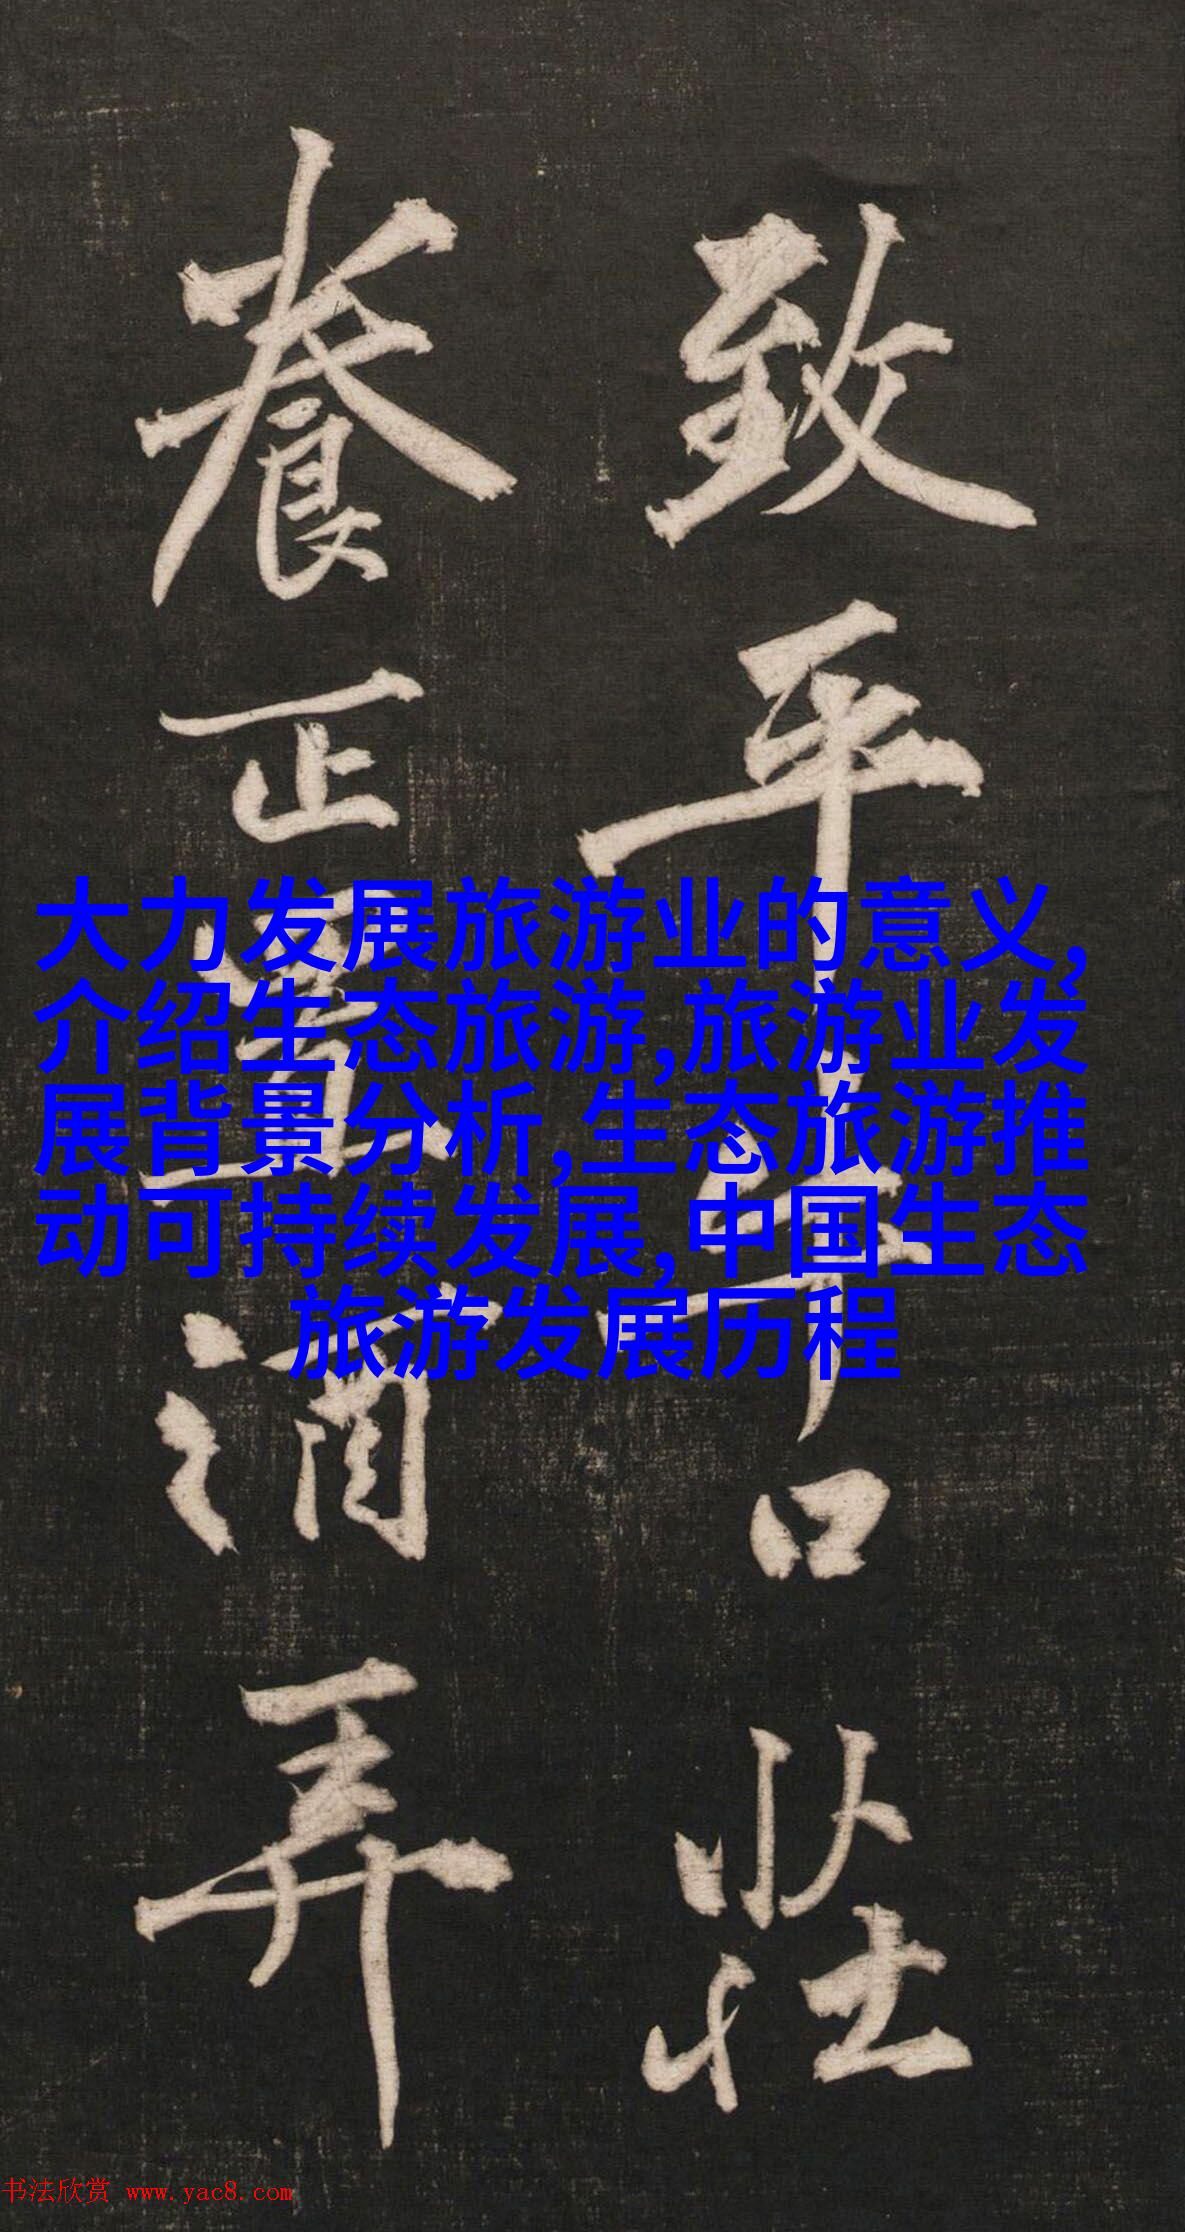 致平
養正置酒弄
大力发展旅游业的意义,
介绍生态旅游,旅游业发
展背景分析,生态旅游推
动可持续发展,中国生态
旅游发展历程
书法欣赏 www.yac8.com